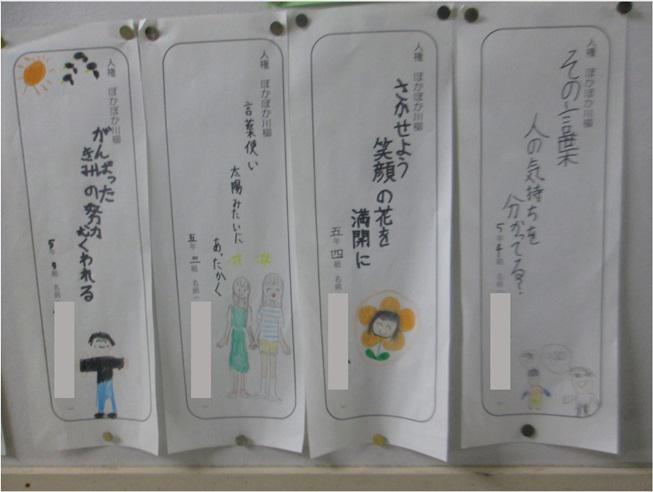 人権 ぽかぽか川柳
その言葉
人の気持ちを
分かってる?
5年 組 名前
人権 ぽかぽか川柳
さかせよう
笑顔の花を
満開に
五年 四組 名前
人権 ぽかぽか川柳
言葉使い
太陽みたいに
あったかく
五年 組 名前
人権 ぽかぽか川柳
がんばった
きみの努力
むくわれる
5年 組 名前